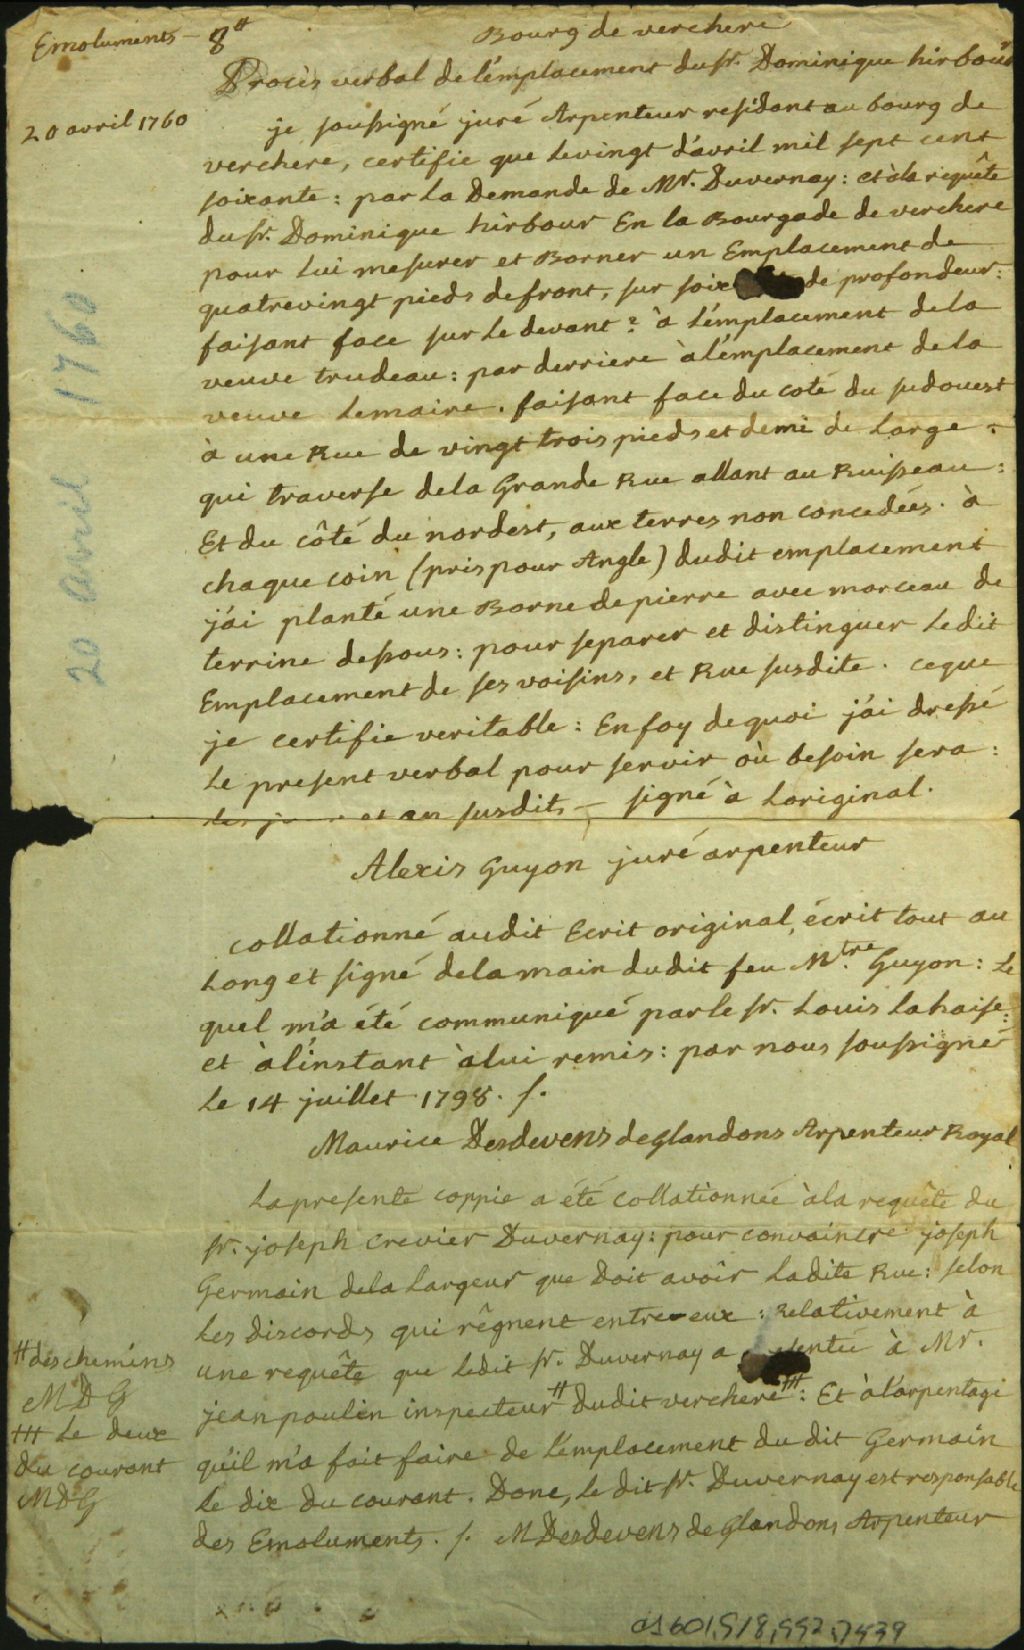 Emoluments – 8ᵗᵗ
Bourg de verchere
Procès verbal de l'emplacement du sr. Dominique hirbour
20 avril 1760
je soussigné juré Arpenteur residant au bourg de
verchere, certifie que le vingt d'avril mil sept cent
soixante : par la Demande de Mr. Duvernay : et à la requête
du sr. Dominique hirbour En la Bourgade de verchere
pour lui mesurer et Borner un Emplacement de
quatrevingt pieds de front, sur soix de profondeur :
faisant face sur le devant à l'emplacement de la
veuve trudeau : par derriere à l'emplacement de la
veuve Lemaire. faisant face du coté du sudouest
à une Rue de vingt trois pieds et demi de Large
qui traverse de la Grande Rue allant au Ruisseau :
Et du côté du nordest, aux terres non concedées. à
chaque coin (pris pour Angle) dudit emplacement
j'ai planté une Borne de pierre avec morceau de
terrine dessous : pour separer et distinguer Ledit
Emplacement de ses voisins, et Rue susdite. ceque
je certifie veritable : En foy de quoi j'ai dressé
Le present verbal pour servir où besoin sera :
et an susdits – signé à Loriginal.
Alexis Guyon juré arpenteur
20 avril 1760
collationné audit Ecrit original, écrit tout au
Long et signé de la main dudit feu Mtre. Guyon : Le
quel m'a été communiqué par le sr. Louis Lahaise :
et à l'instant à lui remis : par nous soussigné
Le 14 juillet 1798. /.
Maurice Desdevens de Glandons Arpenteur Royal
La presente coppie a été collationnée à la requête du
sr. joseph crevier Duvernay : pour convaincre joseph
Germain de la Largeur que Doit avoir Ladite Rue : selon
Les discords qui rêgnent entre eux : Relativement à
une requête que Ledit sr. Duvernay a à Mr.
jean poulin inspecteur # dudit verchere ##: Et à l'arpentagé
qu'il m'a fait faire de L'emplacement du dit Germain
Le dix du courant. Donc, Le dit sr. Duvernay est responsable
des Emoluments. /. MDesdevens de Glandons Arpenteur
# des chemins
MDG
## Le deux
du courant
MDG